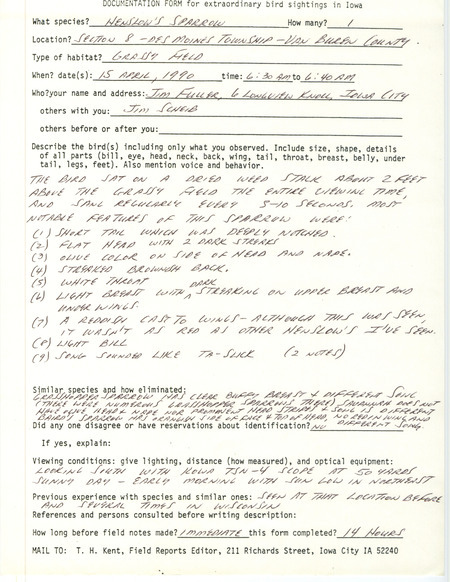 DOCUMENTATION FORM for extraordinary bird sightings in Iowa
What species? HENSLOW'S SPARROW How many? 1
Location? SECTION 8 - DES MOINES TOWNSHIP - VAN BUREN COUNTY.
Type of habitat? GRASSY FIELD
When? date(s): 15 APRIL, 1990 time: 6:30 AM to 6:40 AM
Who? your name and address: JIM FULLER, 6 LONGVIEW KNOLL, IOWA CITY
others with you: JIM SCHEIB
others before or after you:
Describe the bird(s) including only what you observed. Include size, shape, details
of all parts (bill, eye, head, neck, back, wing, tail, throat, breast, belly, under
tail, legs, feet). Also mention voice and behavior.
THE BIRD SAT ON A DRIED WEED STALK ABOUT 2 FEET
ABOVE THE GRASSY FIELD THE ENTIRE VIEWING TIME,
AND SANG REGULARLY EVERY 3-10 SECONDS. MOST
NOTABLE FEATURES OF THIS SPARROW WERE:
(1) SHORT TAIL WHICH WAS DEEPLY NOTCHED.
(2) FLAT HEAD WITH 2 DARK STREAKS
(3) OLIVE COLOR ON SIDE OF HEAD AND NAPE.
(4) STREAKED BROWNISH BACK.
(5) WHITE THROAT
(6) LIGHT BREAST WITH DARK STREAKING ON UPPER BREAST AND
UNDER WINGS.
(7) A REDDISH CAST TO WINGS - ALTHOUGH THIS WAS SEEN,
IT WASN'T AS RED AS OTHER HENSLOW'S I'VE SEEN.
(8) LIGHT BILL
(9) SONG SOUNDED LIKE TA-SLICK (2 NOTES)
Similar species and how eliminated:
GRASSHOPPER SPARROW HAS CLEAR BUFFY BREAST & DIFFERENT SONG
(THERE WERE NUMEROUS GRASSHOPPER SPARROWS THERE) SAVANNAH DOES NOT
HAVE OLIVE HEAD & NAPE NOR PROMINENT HEAD STRIPES & SONG IS DIFFERENT
BAIRD'S SPARROW HAS ORANGISH SIDE OF FACE & TOP OF HEAD, NO RED IN WING AND
Did any one disagree or have reservations about identification? NO DIFFERENT SONG.
If yes, explain:
Viewing conditions: give lighting, distance (how measured), and optical equipment:
LOOKING SOUTH WITH KOWA TSN-4 SCOPE AT 50 YARDS
SUNNY DAY - EARLY MORNING WITH SUN LOW IN NORTHEAST
Previous experience with species and similar ones: SEEN AT THAT LOCATION BEFORE
AND SEVERAL TIMES IN WISCONSIN
References and persons consulted before writing description:
How long before field notes made? IMMEDIATE this form completed? 14 HOURS
MAIL TO: T. H. Kent, Field Reports Editor, 211 Richards Street, Iowa City IA 52240